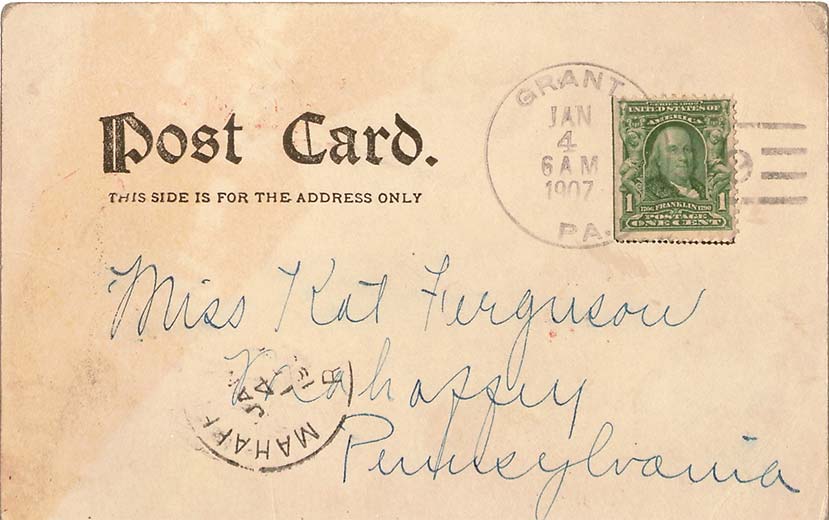 Post Card.
THIS SIDE IS FOR THE ADDRESS ONLY
GRANT
JAN
4
6 AM
1907
PA.
SERIES 1902
UNITED STATES OF
AMERICA
1 1706 FRANKLIN 1790 1
POSTAGE
ONE CENT
Miss Kat Ferguson
Mahaffey
Pennsylvania
MAHAFF
JA
4